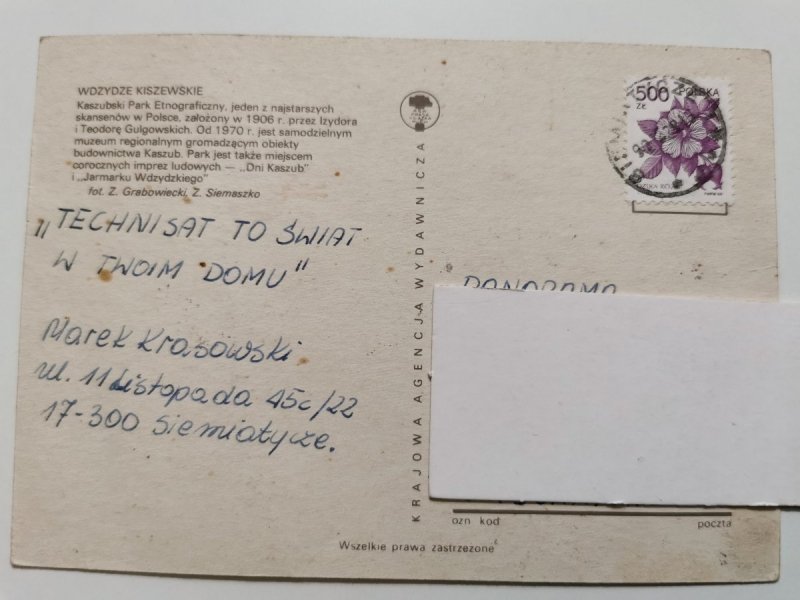 WDZYDZE KISZEWSKIE
Kaszubski Park Etnograficzny, jeden z najstarszych
skansenów w Polsce, założony w 1906 r. przez Izydora
i Teodorę Gulgowskich. Od 1970 r. jest samodzielnym
muzeum regionalnym gromadzącym obiekty
budownictwa Kaszub. Park jest także miejscem
corocznych imprez ludowych — „Dni Kaszub"
i „Jarmarku Wdzydzkiego"
fot. Z. Grabowiecki, Z. Siemaszko
„TECHNISAT TO ŚWIAT
W TWOIM DOMU"
Marek Krasowski
ul. 11 Listopada 45c/22
17-300 Siemiatycze.
KRAJOWA AGENCJA WYDAWNICZA
500 POLSKA
ZŁ
PANORAMA
ozn kod poczta
Wszelkie prawa zastrzeżone